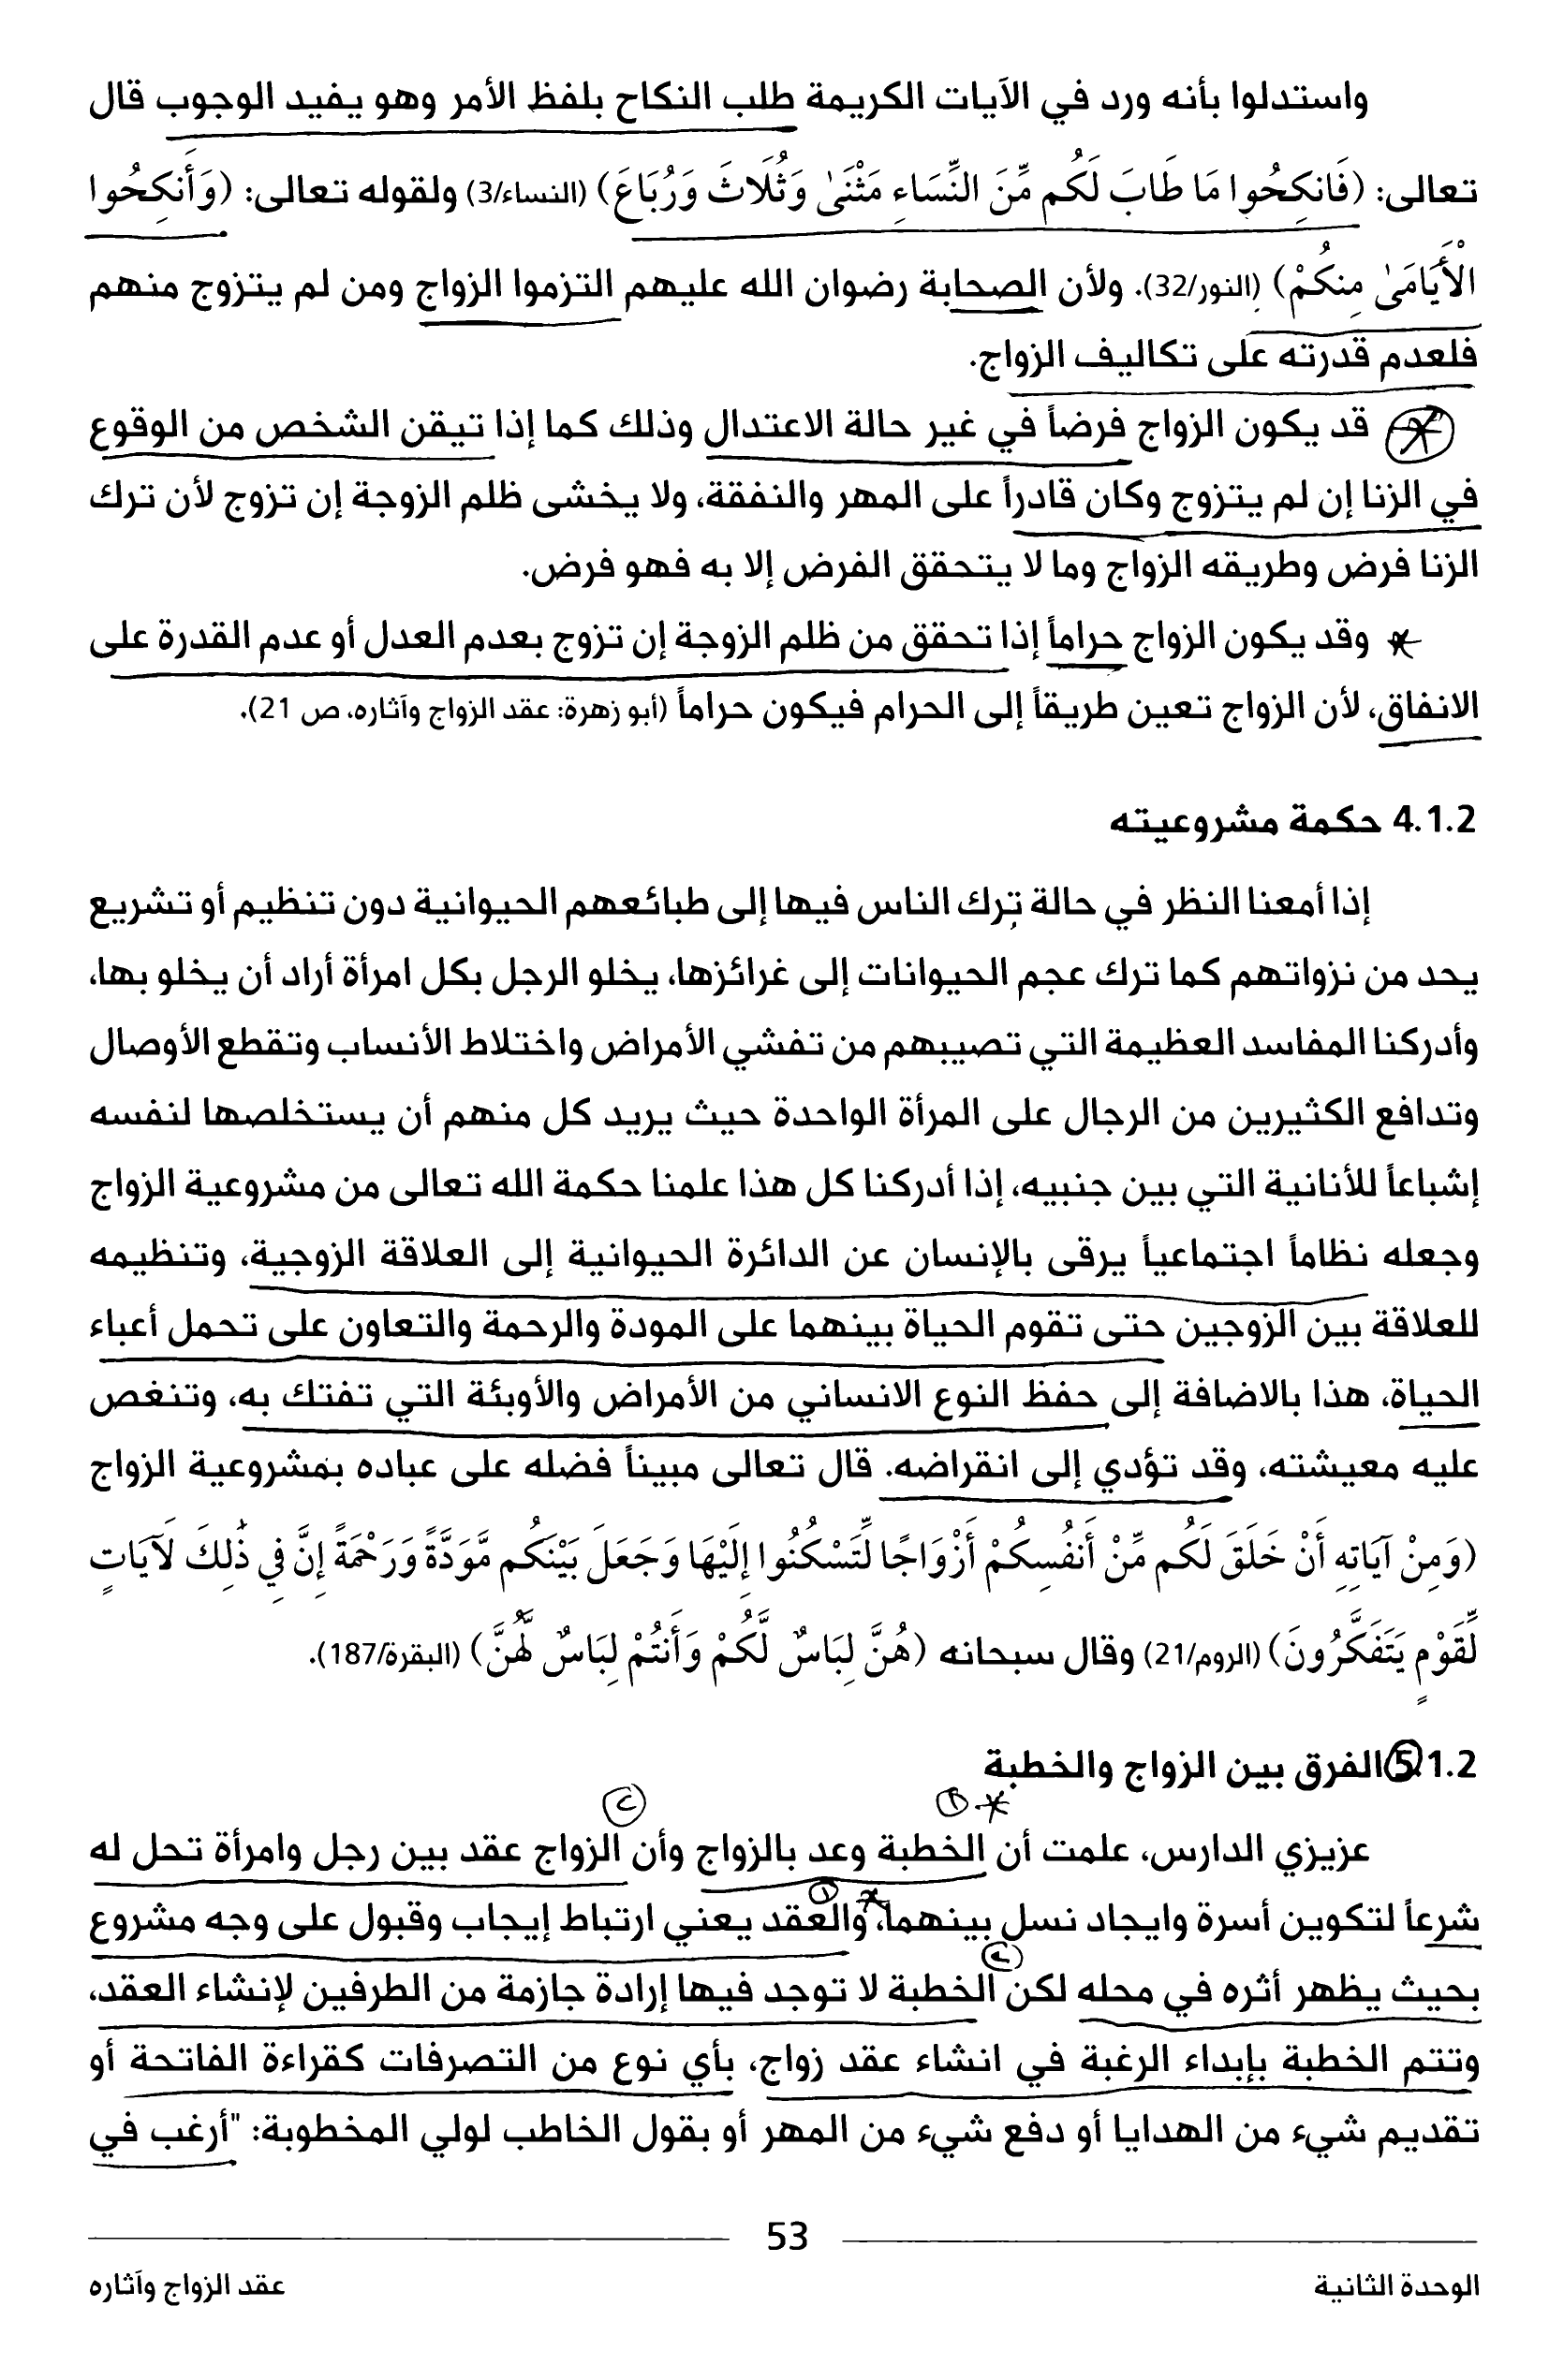 واستدلوا بأنه ورد في الآيات الكريمة طلب النكاح بلفظ الأمر وهو يفيد الوجوب قال
تعالى: (فَانكِحُوا مَا طَابَ لَكُم مِّنَ النِّسَاءِ مَثْنَىٰ وَثُلَاثَ وَرُبَاعَ) (النساء/3) ولقوله تعالى: (وَأَنكِحُوا
الْأَيَامَىٰ مِنكُمْ) (النور/32). ولأن الصحابة رضوان الله عليهم التزموا الزواج ومن لم يتزوج منهم
فلعدم قدرته على تكاليف الزواج.
قد يكون الزواج فرضاً في غير حالة الاعتدال وذلك كما إذا تيقن الشخص من الوقوع
في الزنا إن لم يتزوج وكان قادراً على المهر والنفقة، ولا يخشى ظلم الزوجة إن تزوج لأن ترك
الزنا فرض وطريقه الزواج وما لا يتحقق الفرض إلا به فهو فرض.
* وقد يكون الزواج حراماً إذا تحقق من ظلم الزوجة إن تزوج بعدم العدل أو عدم القدرة على
الانفاق، لأن الزواج تعين طريقاً إلى الحرام فيكون حراماً (أبو زهرة: عقد الزواج وآثاره، ص 21).
4.1.2 حكمة مشروعيته
إذا أمعنا النظر في حالة ترك الناس فيها إلى طبائعهم الحيوانية دون تنظيم أو تشريع
يحد من نزواتهم كما ترك عجم الحيوانات إلى غرائزها، يخلو الرجل بكل امرأة أراد أن يخلو بها،
وأدركنا المفاسد العظيمة التي تصيبهم من تفشي الأمراض واختلاط الأنساب وتقطع الأوصال
وتدافع الكثيرين من الرجال على المرأة الواحدة حيث يريد كل منهم أن يستخلصها لنفسه
إشباعاً للأنانية التي بين جنبيه، إذا أدركنا كل هذا علمنا حكمة الله تعالى من مشروعية الزواج
وجعله نظاماً اجتماعياً يرقى بالإنسان عن الدائرة الحيوانية إلى العلاقة الزوجية، وتنظيمه
للعلاقة بين الزوجين حتى تقوم الحياة بينهما على المودة والرحمة والتعاون على تحمل أعباء
الحياة، هذا بالاضافة إلى حفظ النوع الانساني من الأمراض والأوبئة التي تفتك به، وتنغص
عليه معيشته، وقد تؤدي إلى انقراضه. قال تعالى مبيناً فضله على عباده بمشروعية الزواج
(وَمِنْ آيَاتِهِ أَنْ خَلَقَ لَكُم مِّنْ أَنفُسِكُمْ أَزْوَاجًا لِّتَسْكُنُوا إِلَيْهَا وَجَعَلَ بَيْنَكُم مَّوَدَّةً وَرَحْمَةً إِنَّ فِي ذَٰلِكَ لَآيَاتٍ
لِّقَوْمٍ يَتَفَكَّرُونَ) (الروم/21) وقال سبحانه (هُنَّ لِبَاسٌ لَّكُمْ وَأَنتُمْ لِبَاسٌ لَّهُنَّ) (البقرة/187).
5.1.2 الفرق بين الزواج والخطبة
عزيزي الدارس، علمت أن الخطبة وعد بالزواج وأن الزواج عقد بين رجل وامرأة تحل له
شرعاً لتكوين أسرة وايجاد نسل بينهما، والعقد يعني ارتباط إيجاب وقبول على وجه مشروع
بحيث يظهر أثره في محله لكن الخطبة لا توجد فيها إرادة جازمة من الطرفين لإنشاء العقد،
وتتم الخطبة بإبداء الرغبة في انشاء عقد زواج، بأي نوع من التصرفات كقراءة الفاتحة أو
تقديم شيء من الهدايا أو دفع شيء من المهر أو بقول الخاطب لولي المخطوبة: "أرغب في
53
الوحدة الثانية
عقد الزواج وآثاره